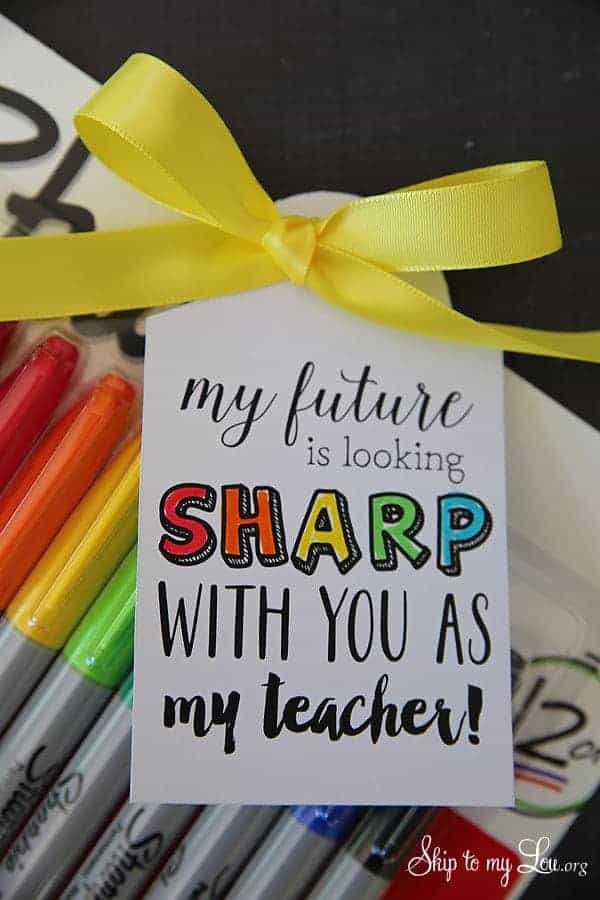 my future
is looking
SHARP
WITH YOU AS
my teacher!
12
Sharpie
Sharpie
Sharpie
Skip to my Lou.org